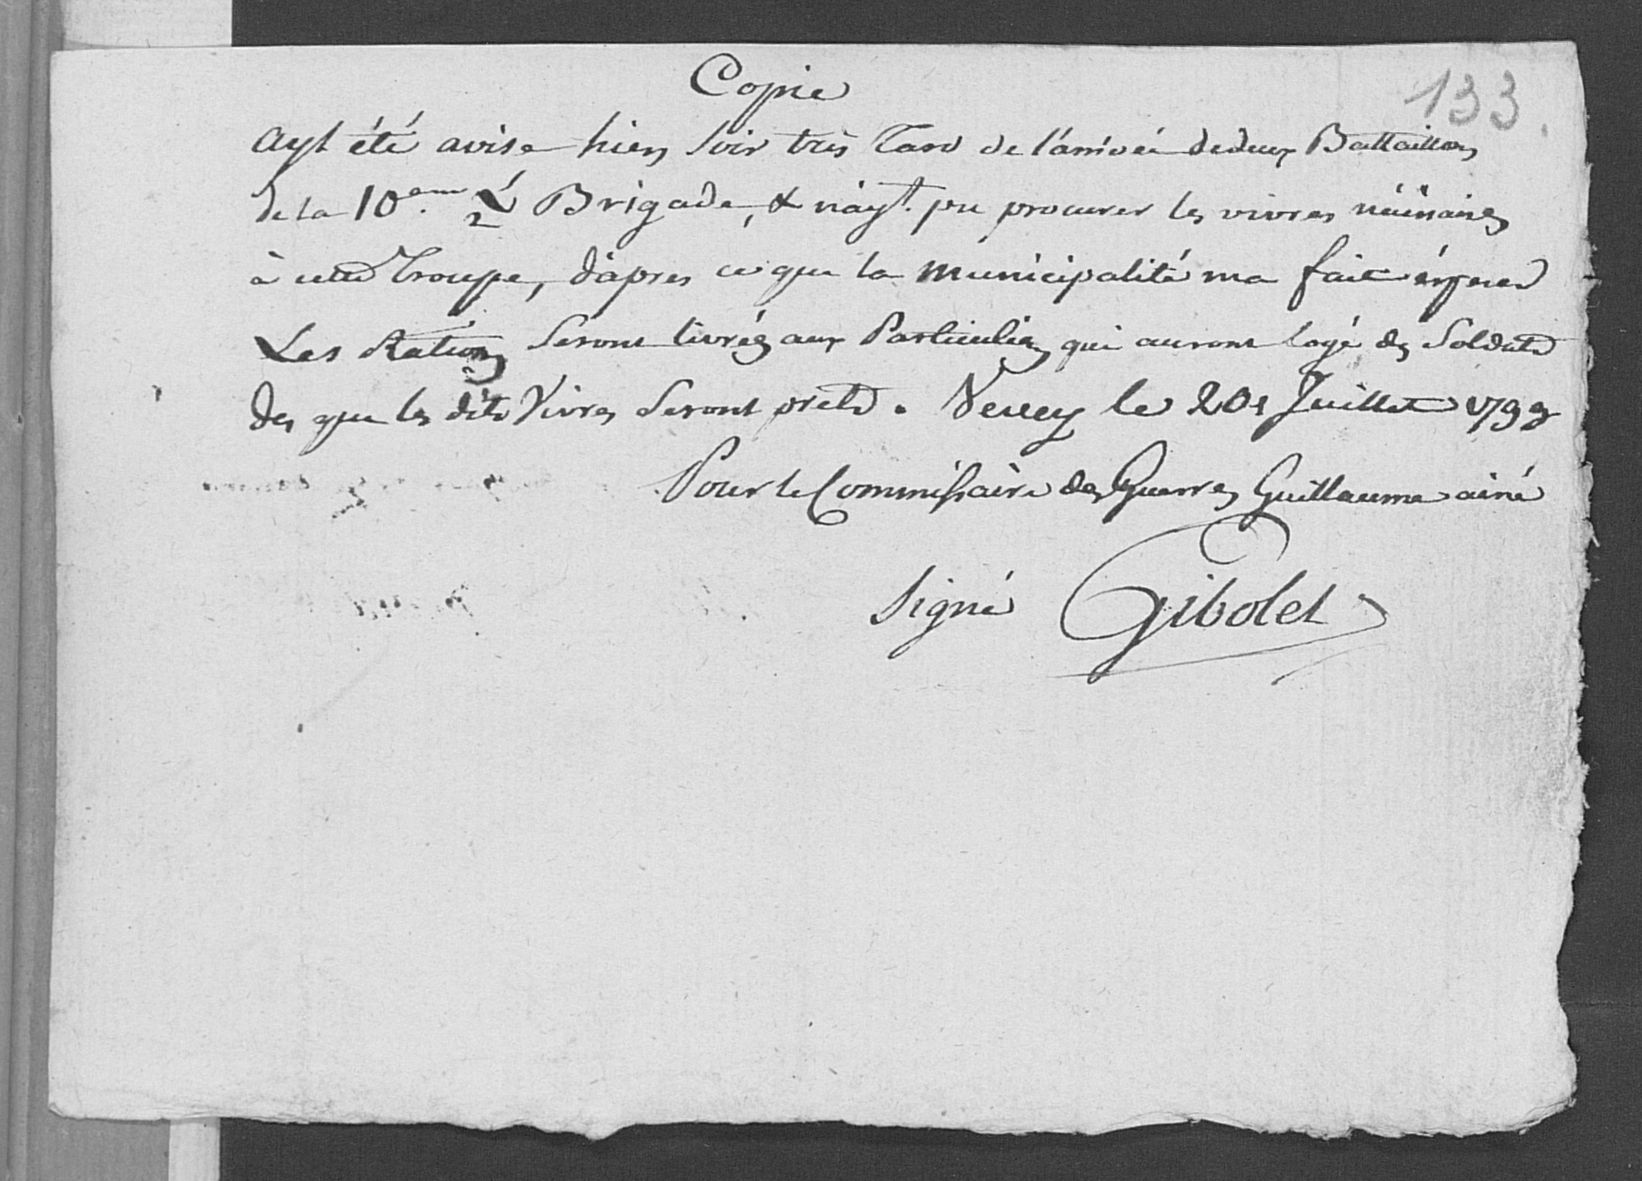 Copie
133.
Ayt été avisé hier soir très Tard de l'arrivée de deux Battaillons
de la 10eme 1/2 Brigade, & n'ayt. pu procurer les vivres nécéssaires
à cette Troupe, d'apres ce que la municipalité ma fait
Les Rations Seront livrées aux Particuliers qui auront logé des Soldats
des que les dits Vivres Seront prets. Vevey le 20e Juillet 1799
Pour le Commissaire des Guerres Guillaume ainé
signé Gibolet